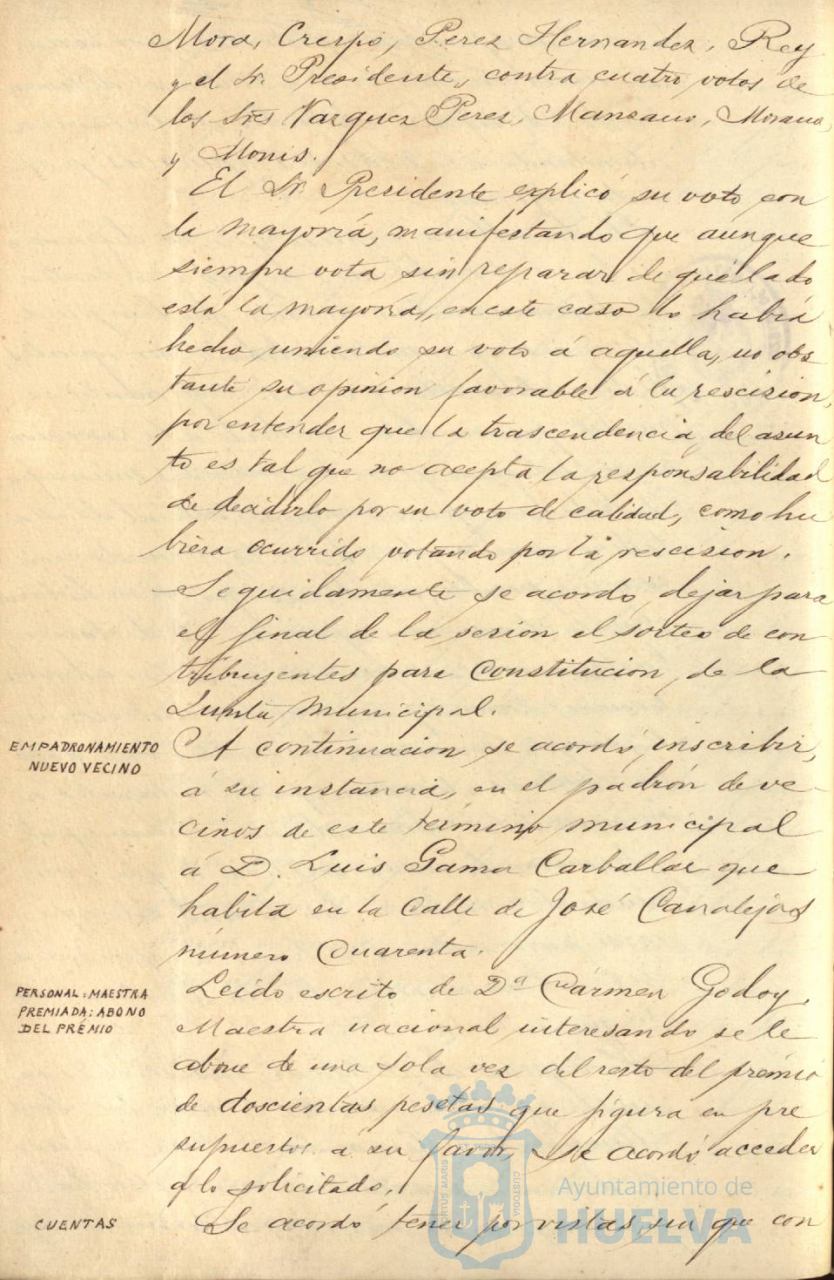 Mora, Crespo, Perez Hernandez, Rey
y el Sr. Presidente, contra cuatro votos de
los Sres Vazquez Perez, Manzano, Morano,
y Monis.
El Sr. Presidente explicó su voto con
la mayoría, manifestando que aunque
siempre vota sin reparar de que lado
esta la mayoría, en este caso lo había
hecho uniendo su voto á aquella, no obs
tante su opinion favorable á la rescision,
por entender que la trascendencia del asun
to es tal que no acepta la responsabilidad
de decidirlo por su voto de calidad, como hu
biera ocurrido votando por la rescision.
Seguidamente se acordó dejar para
el final de la sesion el sorteo de con
tribuyentes para Constitucion, de la
Junta Municipal.
EMPADRONAMIENTO
NUEVO VECINO
A continuacion se acordó, inscribir,
á su instancia, en el padrón de ve-
cinos de este término municipal
á D. Luis Gama Carballar que
habita en la Calle de José Canalejas
número Cuarenta.
PERSONAL: MAESTRA
PREMIADA: ABONO
DEL PREMIO
Leido escrito de Dª Cármen Godoy,
Maestra nacional interesando se le
abone de una sola vez del resto del premio
de doscientas pesetas que figura en pre
supuestos á su favor, se acordó acceder
a lo solicitado.
CUENTAS
Se acordó tener por vistas, sin que con
Ayuntamiento de
HUELVA